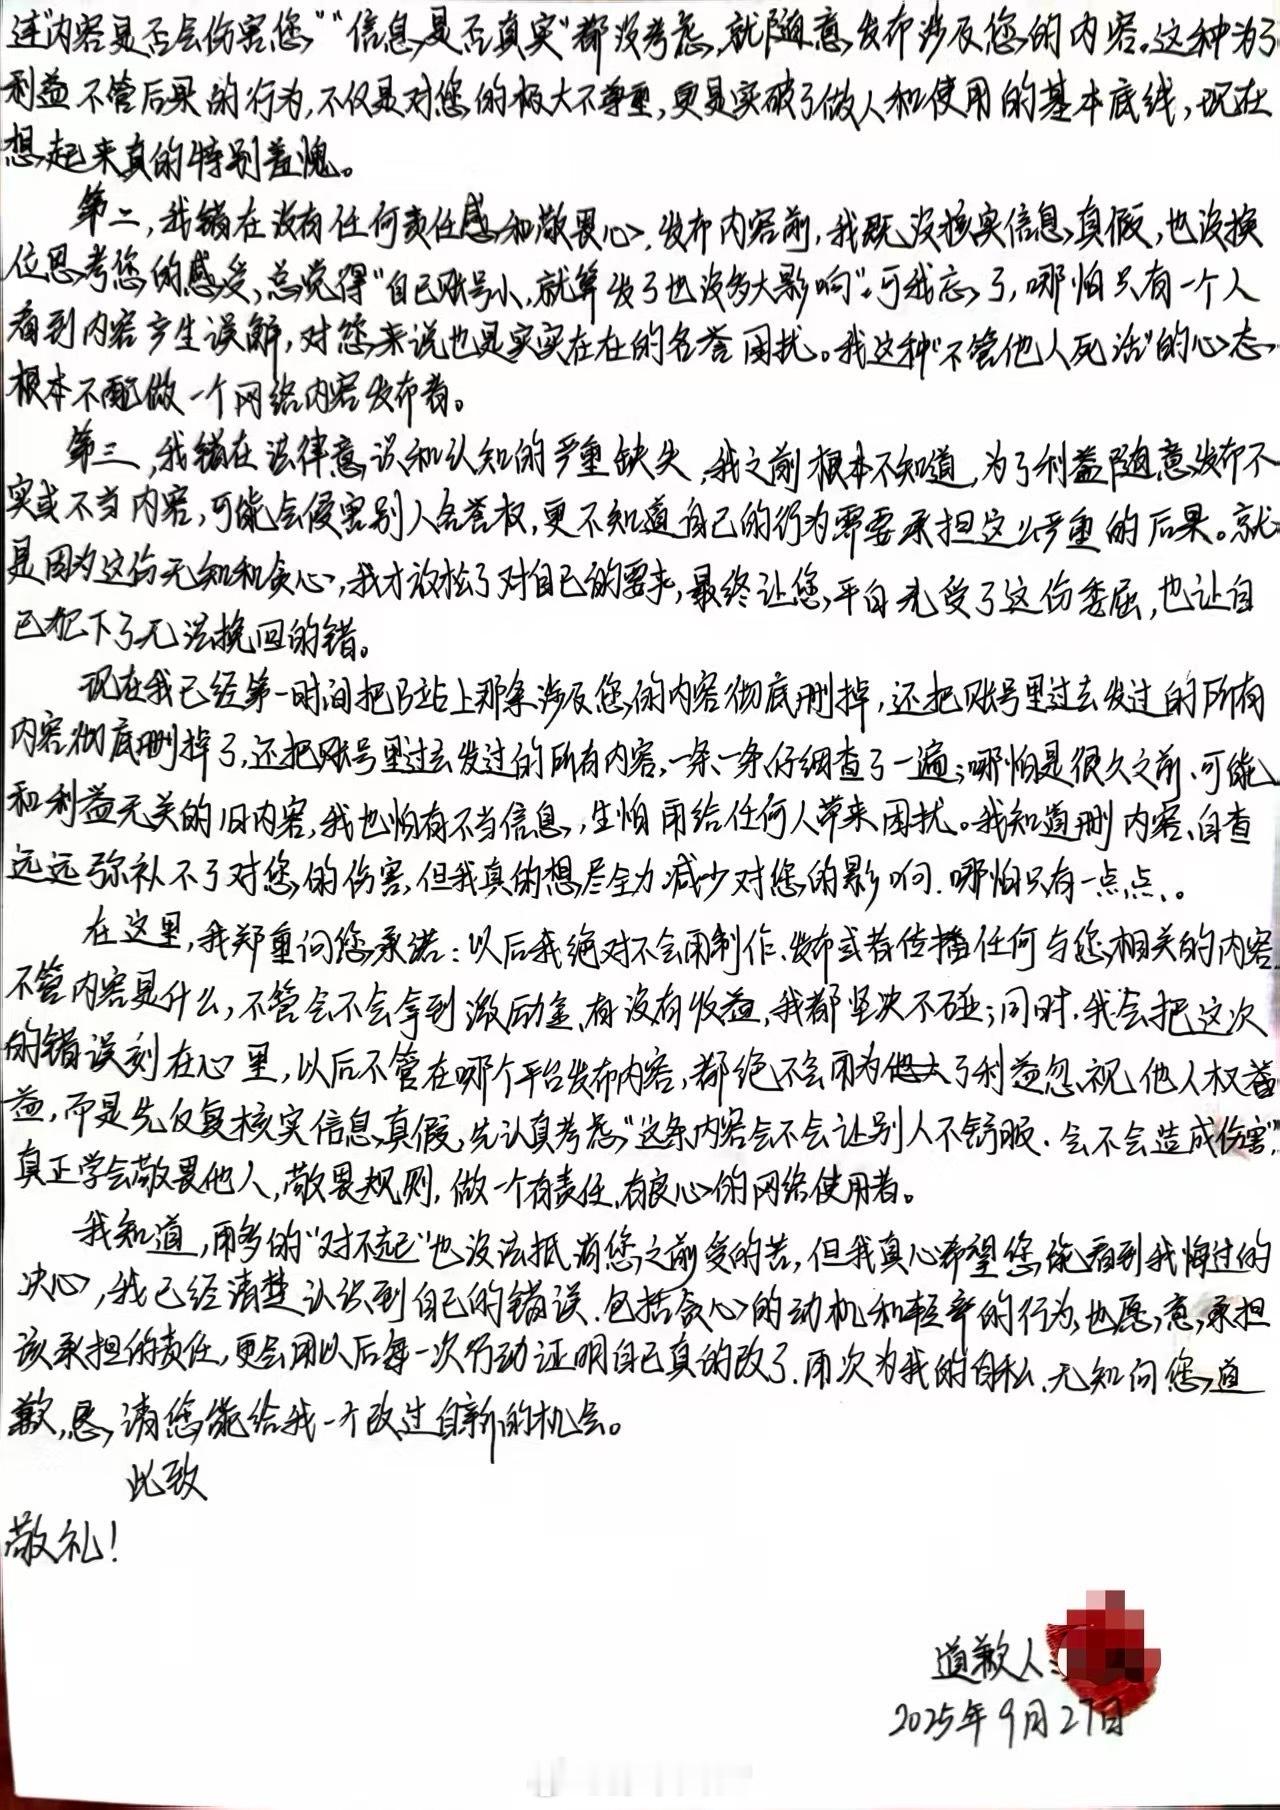 连“内容是否会伤害您”“信息是否真实”都没考虑,就随意发布涉及您的内容。这种为了
利益不管后果的行为,不仅是对您的极大不尊重,更是突破了做人和使用的基本底线,现在
想起来真的特别羞愧。
第二,我错在没有任何责任感和敬畏心,发布内容前,我既没核实信息真假,也没换
位思考您的感受,总觉得“自己账号小,就算发了也没多大影响”,可我忘了,哪怕只有一个人
看到内容产生误解,对您来说也是实实在在的名誉困扰。我这种“不管他人死活”的心态,
根本不配做一个网络内容发布者。
第三,我错在法律意识和认知的严重缺失,我之前根本不知道,为了利益随意发布不
实或不当内容,可能会侵害别人名誉权,更不知道自己的行为需要承担这么严重的后果。就
是因为这份无知和贪心,我才放松了对自己的要求,最终让您平白无受了这份委屈,也让自
己犯下了无法挽回的错。
现在我已经第一时间把B站上那条涉及您的内容彻底删掉,还把账号里过去发过的所有
内容彻底删掉了,还把账号里过去发过的所有内容,一条一条仔细查了一遍;哪怕是很久之前、可能
和利益无关的旧内容,我也怕有不当信息,生怕再给任何人带来困扰。我知道删内容、自查
远远弥补不了对您的伤害,但我真的想尽全力减少对您的影响,哪怕只有一点点、。
在这里,我郑重向您承诺:以后我绝对不会再制作、发布或者传播任何与您相关的内容
不管内容是什么,不管会不会拿到激励金、有没有收益,我都坚决不碰;同时,我会把这次
的错误刻在心里,以后不管在哪个平台发布内容,都绝不会再为了利益忽视他人权益
益,而是先反复核实信息真假,先认真考虑“这条内容会不会让别人不舒服、会不会造成伤害”
真正学会敬畏他人,敬畏规则,做一个有责任、有良心的网络使用者。
我知道,再多的“对不起”也没法抵消您之前受的苦,但我真心希望您能看到我悔过的
决心,我已经清楚认识到自己的错误,包括贪心的动机和轻率的行为,也愿意承担
该承担的责任,更会用以后每一次行动证明自己真的改了。再次为我的自私、无知向您道
歉,恳请您能给我一个改过自新的机会。
此致
敬礼!
道歉人:
2025年9月27日